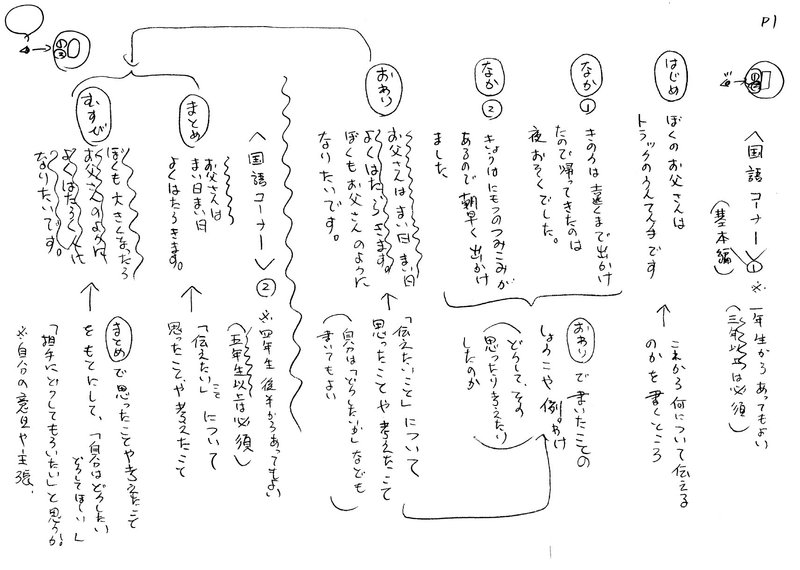 P1
〈国語コーナー〉①
(基本編)
※一年生からあってもよい
(三年以上は必須)
はじめ
ぼくのお父さんは
トラックのうんてん手です
↑これから何について伝える
のかを書くところ
なか①
きのうは遠くまで出かけ
たので帰ってきたのは
夜おそくでした。
なか②
きょうはにもつのつみこみが
あるので朝早く出かけ
ました
おわりで書いたことの
しょうこや例あげ
(どうして、その
思ったり考えたり
したのか)
おわり
お父さんはまい日まい日
よくはたらきます。
ぼくもお父さんのように
なりたいです。
↑「伝えたいこと」について
思ったことや考えたこと
(自分は「どうしたいか」なども
書いてもよい)
〈国語コーナー〉②
※四年生後半からあってもよい
(五年生以上は必須)
まとめ
お父さんは
まい日まい日
よくはたらきます。
↑「伝えたい」ことについて
思ったことや考えたこと
むすび
ぼくも大きくなったら
お父さんのように
よくはたらく人に
なりたいです。
↑まとめで思ったことや考えたこと
をもとにして、「自分はどうしたい
どうしてほしい」
「相手にどうしてもらいたい」と思うか。
※自分の意見や主張.